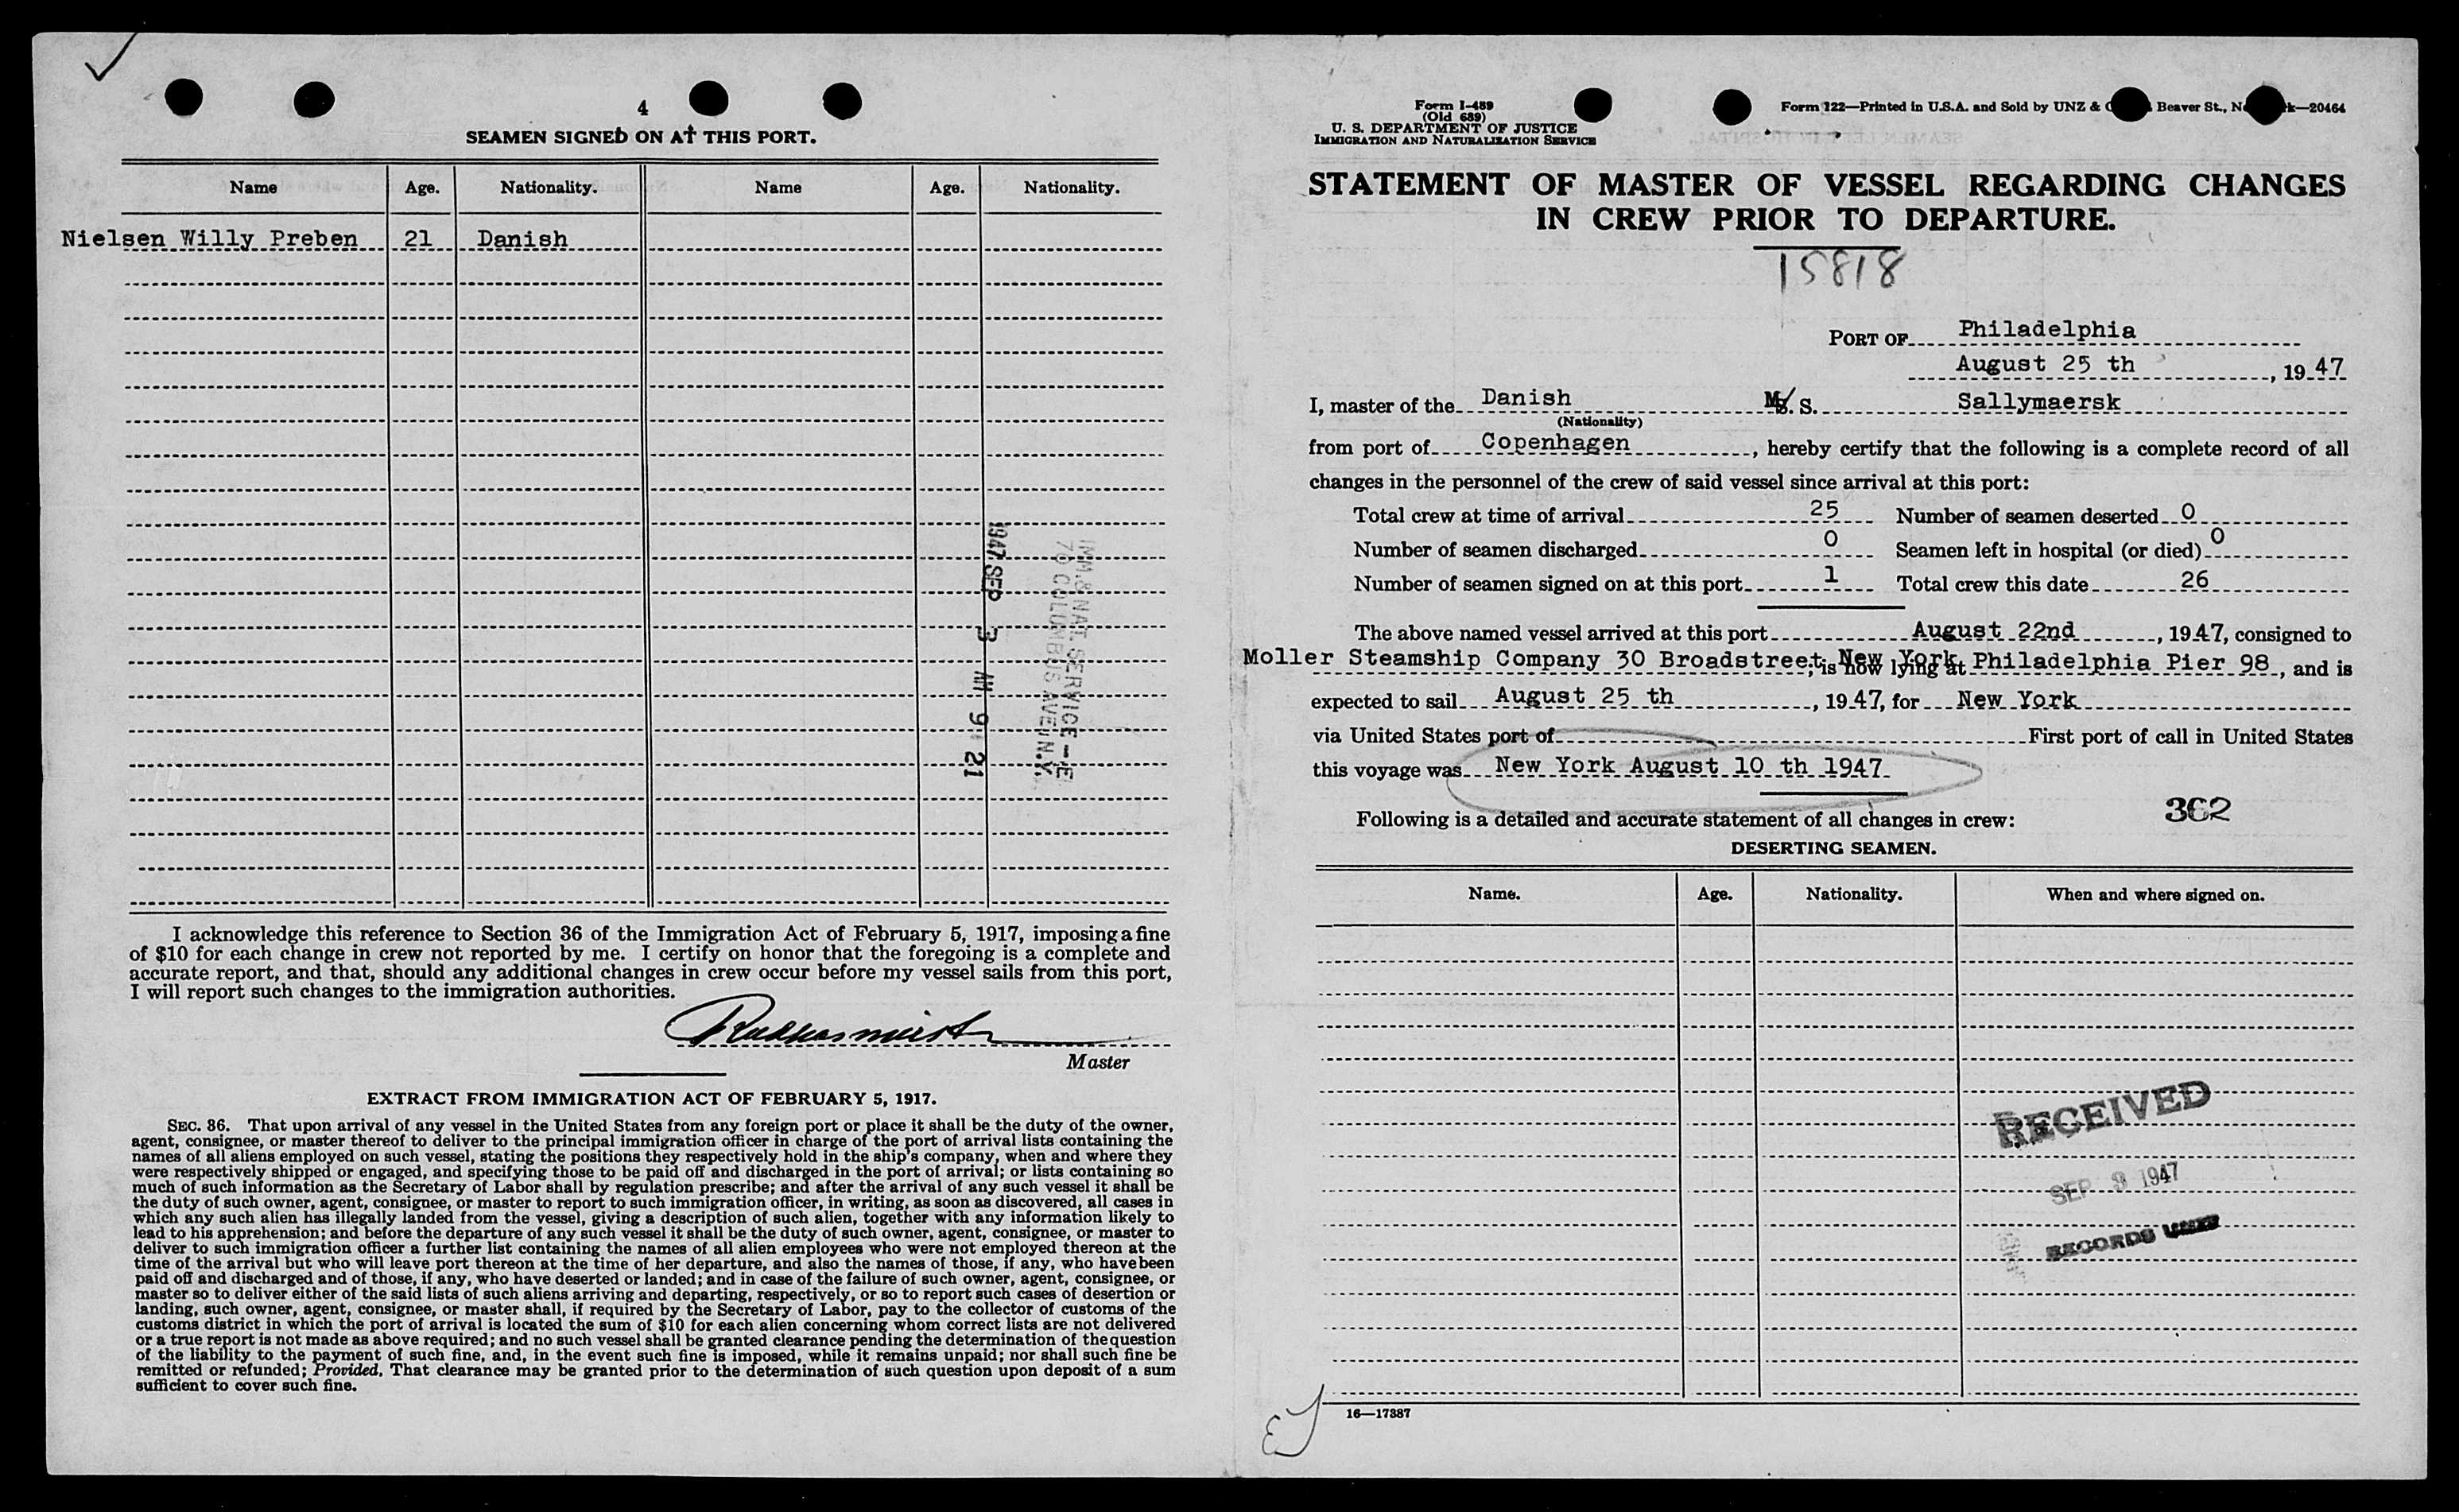 4
SEAMEN SIGNED ON AT THIS PORT.
Name Age. Nationality. Name Age. Nationality.
Nielsen Willy Preben 21 Danish
1947 SEP 3 AM 9 21
IMM. & NAT. SERVICE - E
70 COLUMBUS AVE. N.Y.
I acknowledge this reference to Section 36 of the Immigration Act of February 5, 1917, imposing a fine
of $10 for each change in crew not reported by me. I certify on honor that the foregoing is a complete and
accurate report, and that, should any additional changes in crew occur before my vessel sails from this port,
I will report such changes to the immigration authorities.
Master
EXTRACT FROM IMMIGRATION ACT OF FEBRUARY 5, 1917.
SEC. 36. That upon arrival of any vessel in the United States from any foreign port or place it shall be the duty of the owner,
agent, consignee, or master thereof to deliver to the principal immigration officer in charge of the port of arrival lists containing the
names of all aliens employed on such vessel, stating the positions they respectively hold in the ship's company, when and where they
were respectively shipped or engaged, and specifying those to be paid off and discharged in the port of arrival; or lists containing so
much of such information as the Secretary of Labor shall by regulation prescribe; and after the arrival of any such vessel it shall be
the duty of such owner, agent, consignee, or master to report to such immigration officer, in writing, as soon as discovered, all cases in
which any such alien has illegally landed from the vessel, giving a description of such alien, together with any information likely to
lead to his apprehension; and before the departure of any such vessel it shall be the duty of such owner, agent, consignee, or master to
deliver to such immigration officer a further list containing the names of all alien employees who were not employed thereon at the
time of the arrival but who will leave port thereon at the time of her departure, and also the names of those, if any, who have been
paid off and discharged and of those, if any, who have deserted or landed; and in case of the failure of such owner, agent, consignee, or
master so to deliver either of the said lists of such aliens arriving and departing, respectively, or so to report such cases of desertion or
landing, such owner, agent, consignee, or master shall, if required by the Secretary of Labor, pay to the collector of customs of the
customs district in which the port of arrival is located the sum of $10 for each alien concerning whom correct lists are not delivered
or a true report is not made as above required; and no such vessel shall be granted clearance pending the determination of the question
of the liability to the payment of such fine, and, in the event such fine is imposed, while it remains unpaid; nor shall such fine be
remitted or refunded; Provided, That clearance may be granted prior to the determination of such question upon deposit of a sum
sufficient to cover such fine.
Form I-489
(Old 689)
U. S. DEPARTMENT OF JUSTICE
IMMIGRATION AND NATURALIZATION SERVICE
Form 122—Printed in U.S.A. and Sold by UNZ & Beaver St., —20464
STATEMENT OF MASTER OF VESSEL REGARDING CHANGES
IN CREW PRIOR TO DEPARTURE.
15818
PORT OF Philadelphia
August 25 th, 19 47
I, master of the Danish M. S. Sallymaersk
(Nationality)
from port of Copenhagen, hereby certify that the following is a complete record of all
changes in the personnel of the crew of said vessel since arrival at this port:
Total crew at time of arrival 25 Number of seamen deserted 0
Number of seamen discharged 0 Seamen left in hospital (or died) 0
Number of seamen signed on at this port 1 Total crew this date 26
The above named vessel arrived at this port August 22nd, 1947, consigned to
Moller Steamship Company 30 Broadstreet, New York; is now lying at Philadelphia Pier 98, and is
expected to sail August 25 th, 1947, for New York
via United States port of First port of call in United States
this voyage was New York August 10 th 1947
362
Following is a detailed and accurate statement of all changes in crew:
DESERTING SEAMEN.
Name. Age. Nationality. When and where signed on.
RECEIVED
SEP 3 1947
RECORDS
16—17387